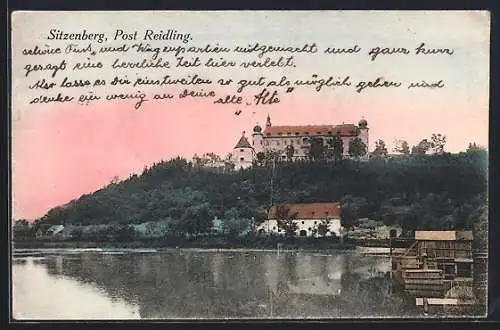 Sitzenberg, Post Reidling.
schöne Fuß- und Wagenpartien mitgemacht und ganz kurz
gesagt eine herrliche Zeit hier verlebt.
Also lasse es Dir einstweilen so gut als möglich gehen und
denke ein wenig an Deine alte
"alte"